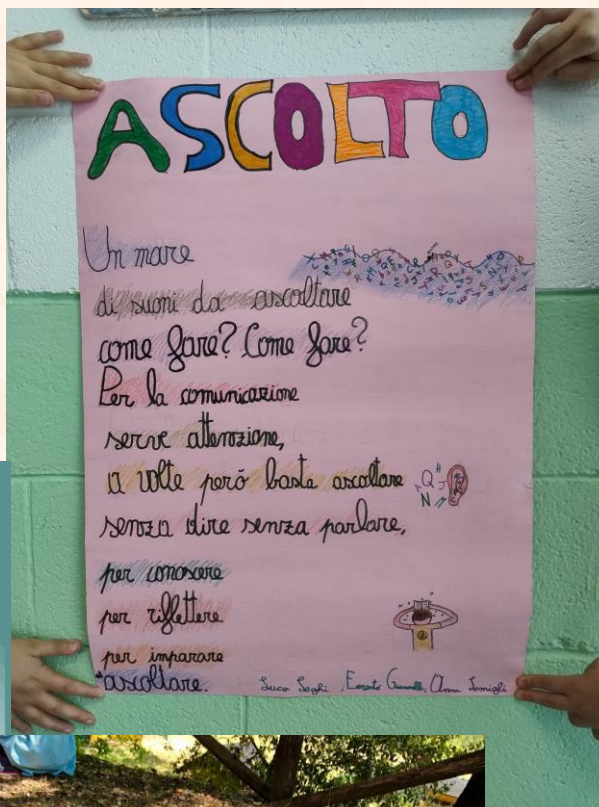 ASCOLTO
Un mare
di suoni da ascoltare
come fare? Come fare?
Per la comunicazione
serve attenzione,
a volte però basta ascoltare
senza dire senza parlare,
per conoscere
per riflettere
per imparare
ascoltare.
Anna